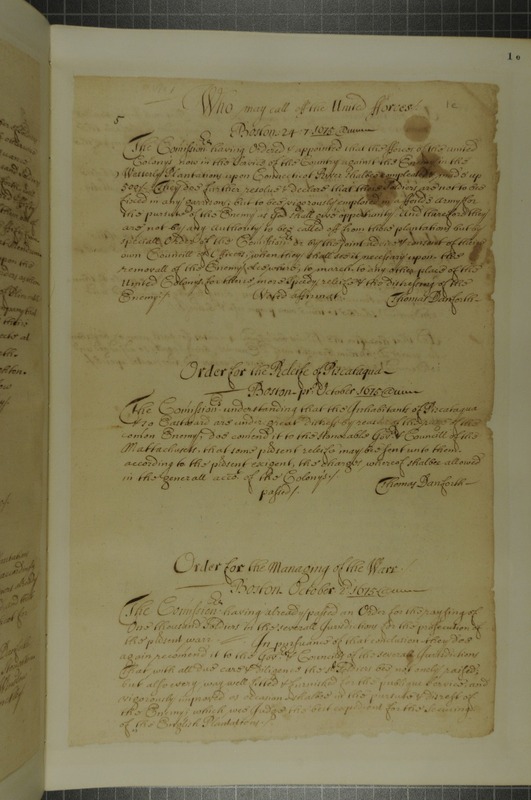 10
5
Who may call off the United fforces
Boston 24 7 1675
The Comission.rs having Ordered & appointed that the fforces of the united
Colonys now in the Service of the Country against the Enemy in the
Western Plantations upon Conecticot River shalbe compleated & made up
500: They doe further resolve & declare that those Soldiers are not to be
fixed in any garrison; but to be vigorously employed as a feild Army for
the pursuite of the Enemy as God shall give oppertunity And therefore they
are not by any Authority to be called off from those plantations but by
speciall Order of the Comission.rs or by the joint advice & consent of they.r
own Councill of Officers, when they shall see it necessary upon the
removall of the Enemy elsewhere, to march to any other place of the
United Colonys for there more speedy releife & the distressing of the
Enemy
Voted affirmat
Thomas Danforth
Order for the Releife of Piscataqua
Boston pr. October 1675
The Comission.rs understanding that the Inhabitants of Piscataqua
& so Eastward are under great distress by reason of the rage of the
comon Enemy; doe comend it to the Honorable Gov.r & Councill of the
Mattachusets, that some present releife may be sent unto them
according to the present exigent, the charges whereof shalbe allowed
in the generall acco. of the Colonys
Thomas Danforth
passed
Order for the Managing of the Warr
Boston October 2d 1675
The Comission.rs having already passed an Order for the raysing of
One thousand Soldiers in the severall Jurisdictions for the prosecution of
the present warr. In pursuance of that conclusion they doe
again recomend it to the Gov.r & Councils of the severall Jurisdictions
That with all due care & diligence the Soldiers bee not only raised;
but also every way well fitted & furnished for the publique Service; and
vigorously
in the pursuite & distress of
the Enemy; which wee Judge the best expedient for the Secureing
of the English Plantations